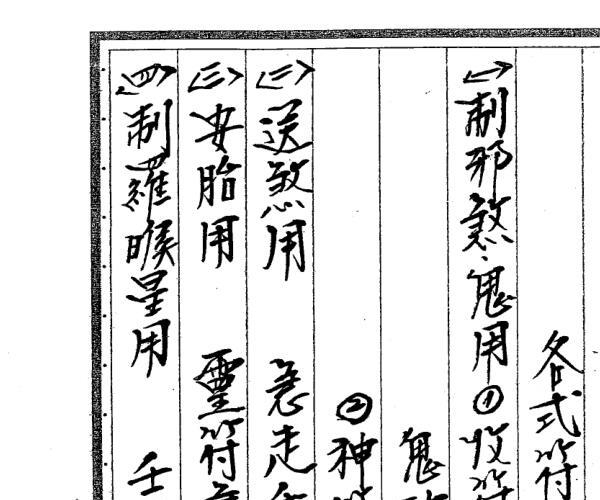 各式符
㈠制邪煞、鬼用①收符
鬼
②神
㈡送煞用 急走
㈢安胎用 靈符
㈣制羅睺星用 壬